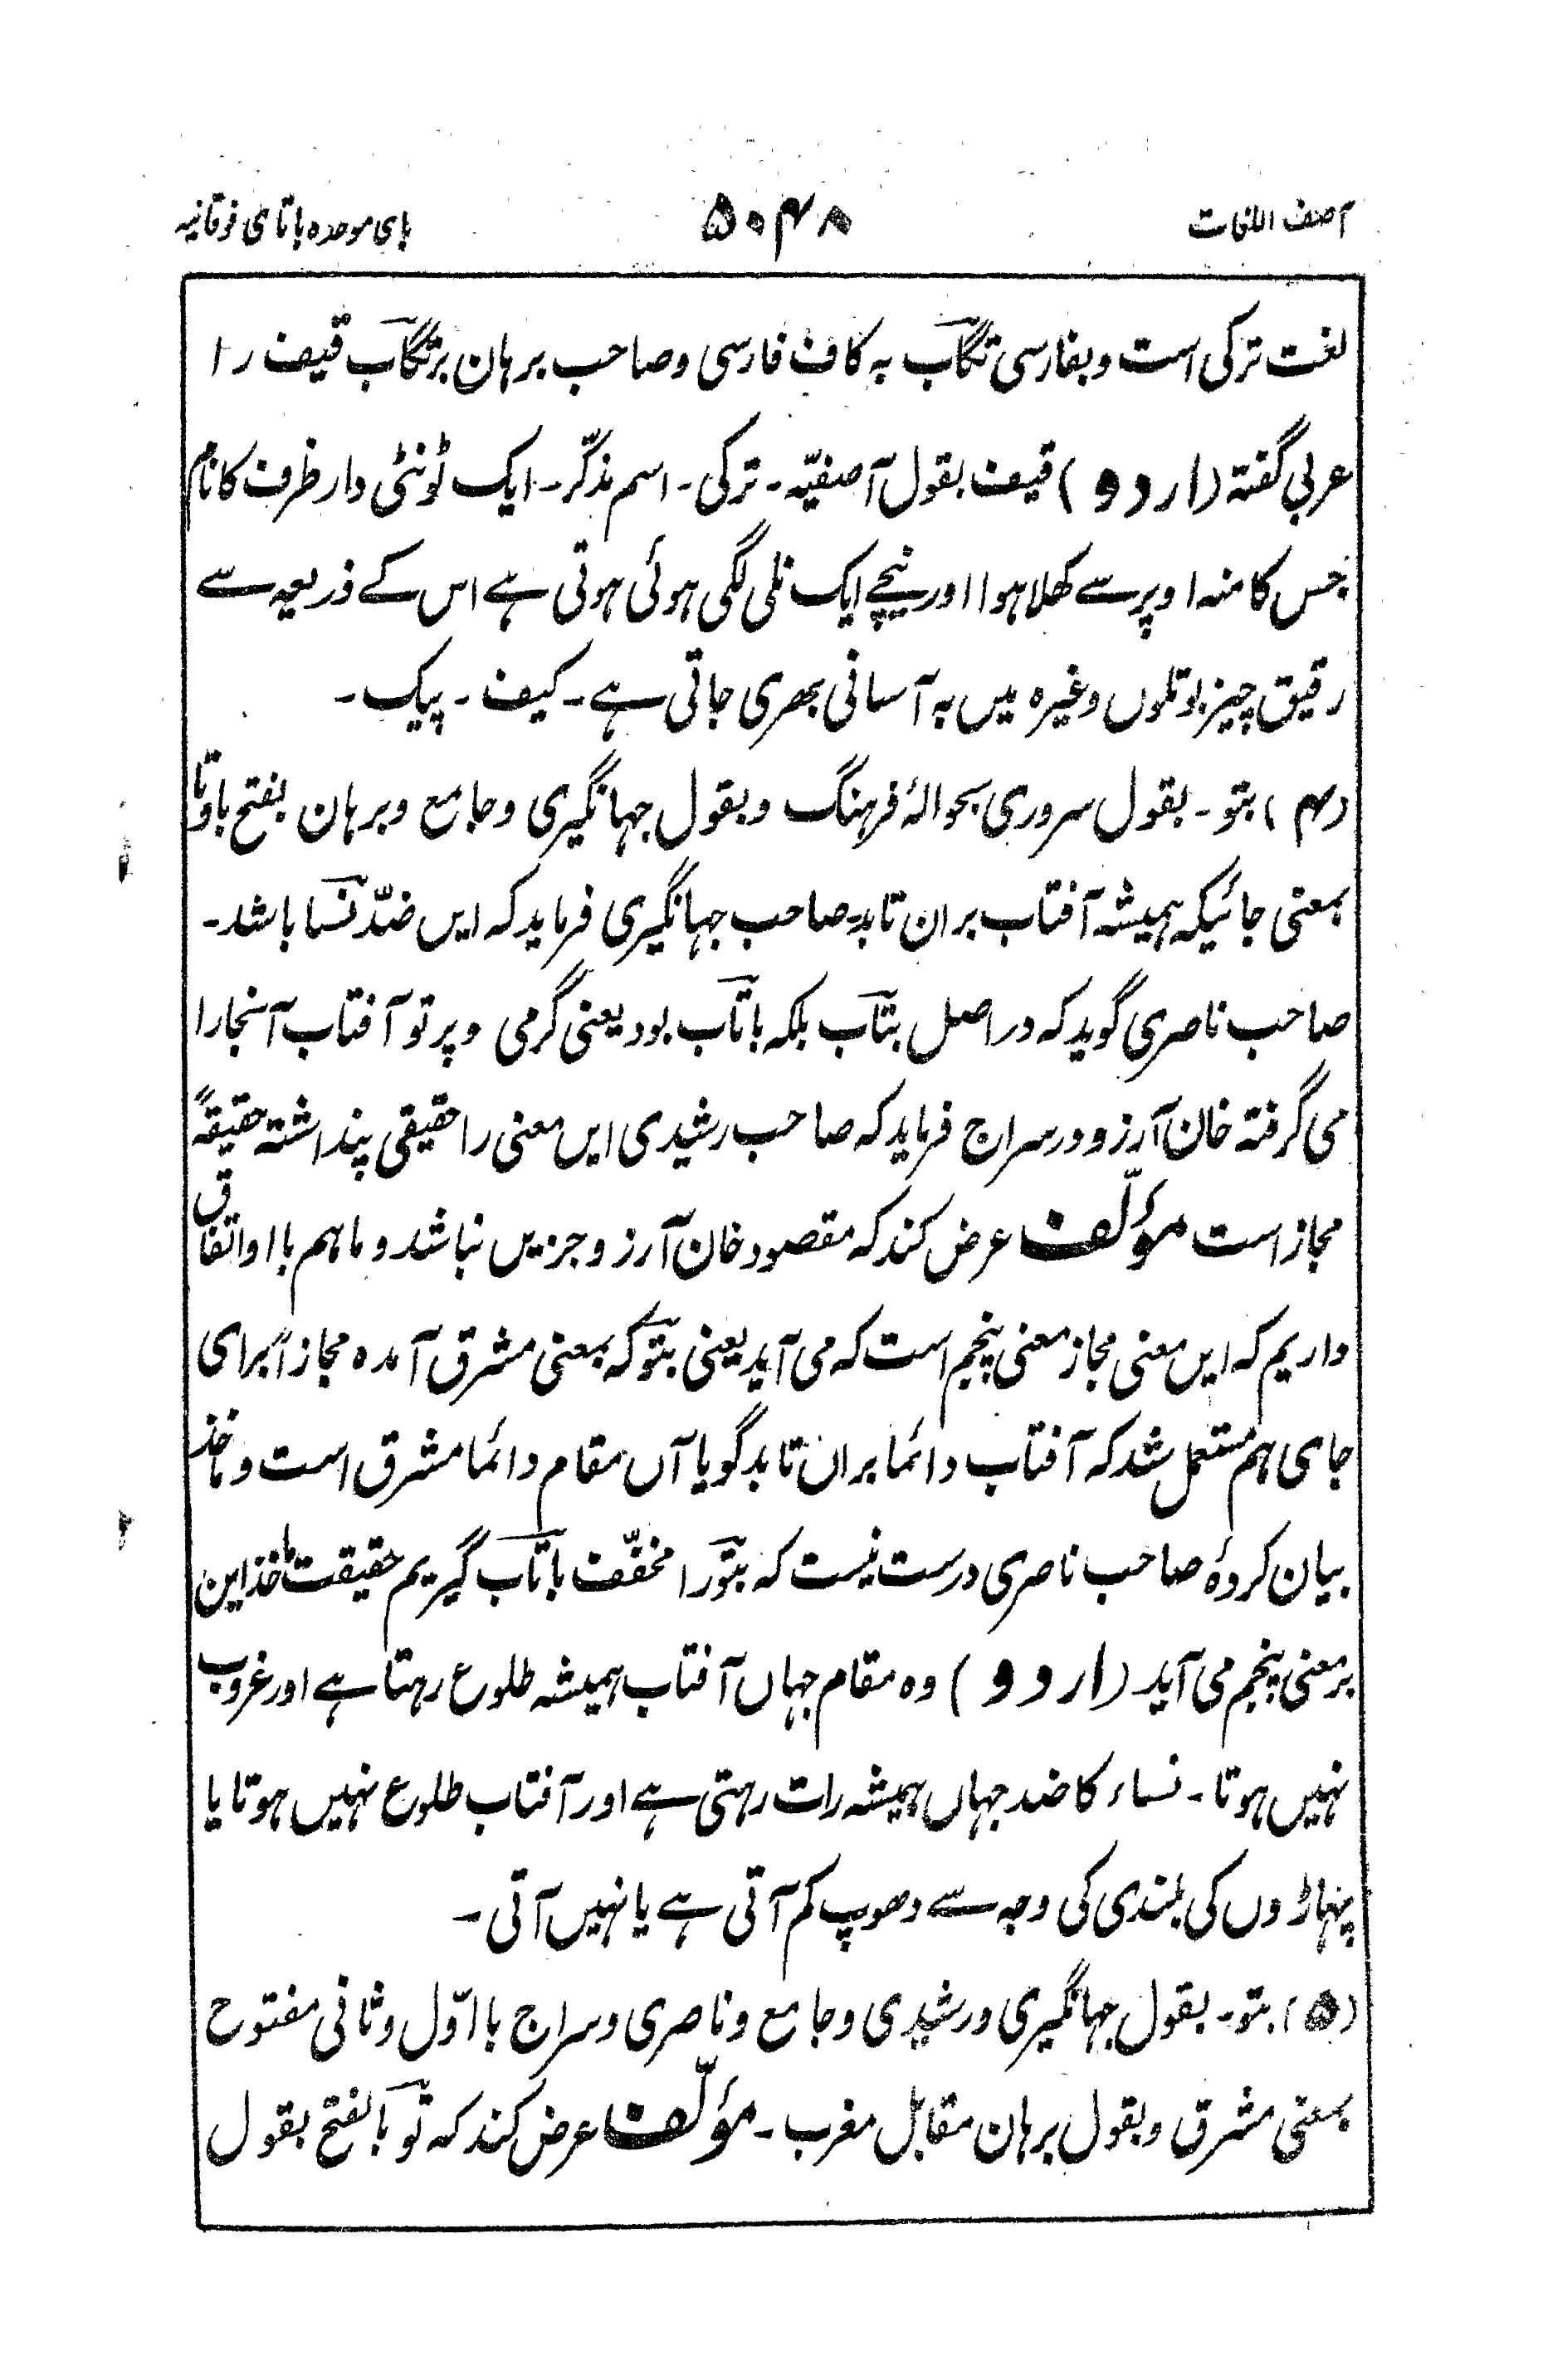 آصف اللغات ۵۰۴۸ بای موحده با تای فوقانیه
لغت ترکی است و بفارسی تگآب به کاف فارسی و صاحب برهان بر تگآب قیف را
عربی گفته (اردو) قیف بقول آصفیّه ۔ ترکی ۔ اسم مذکّر ۔ ایک ٹونٹی دار ظرف کا نام
جس کا منہ اوپر سے کھلا ہوا اور نیچے ایک نلی لگی ہوئی ہوتی ہے اس کے ذریعہ سے
رقیق چیز بوتلوں وغیرہ میں بہ آسانی بھری جاتی ہے ۔ کیف ۔ پیک ۔
(۴) بتو ۔ بقول سروری بحوالۂ فرہنگ و بقول جہانگیری و جامع و برہان بفتح با و تا
بمعنی جائیکہ ہمیشہ آفتاب بران تابد۔ صاحب جہانگیری فرماید کہ ایں ضدّ نسا باشد ۔
صاحب ناصری گوید کہ در اصل بتاب بلکہ باتاب بود یعنی گرمی و پرتو آفتاب آنجا را
می گرفتہ خان آرزو در سراج فرماید کہ صاحب رشیدی ایں معنی را حقیقی پنداشتہ حقیقۃً
مجاز است مؤلّف عرض کند کہ مقصود خان آرزو جزیں نباشد و ما ہم با او اتفاق
داریم کہ ایں معنی مجاز معنی پنجم است کہ می آید یعنی بتو کہ بمعنی مشرق آمدہ مجازاً برای
جای ہم مستعمل شد کہ آفتاب دائما بران تابد گویا آں مقام دائما مشرق است و ماخذ
بیان کردۂ صاحب ناصری درست نیست کہ بتو را مخفّف باتاب گیریم حقیقت ماخذ این
بر معنی پنجم می آید (اردو) وہ مقام جہاں آفتاب ہمیشہ طلوع رہتا ہے اور غروب
نہیں ہوتا ۔ نساء کا ضد جہاں ہمیشہ رات رہتی ہے اور آفتاب طلوع نہیں ہوتا یا
پہاڑوں کی بلندی کی وجہ سے دھوپ کم آتی ہے یا نہیں آتی ۔
(۵) بتو ۔ بقول جہانگیری و رشیدی و جامع و ناصری و سراج با اوّل و ثانی مفتوح
بمعنی مشرق و بقول برہان مقابل مغرب ۔ مؤلّف عرض کند کہ تو بالفتح بقول